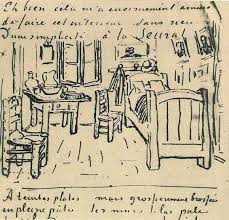 Eh bien cela m'a énormément amusé
de faire cet intérieur sans rien
d'une simplicité à la Seurat
A teintes plates mais grossièrement brossées
en pleine pâte les murs lilas pâle